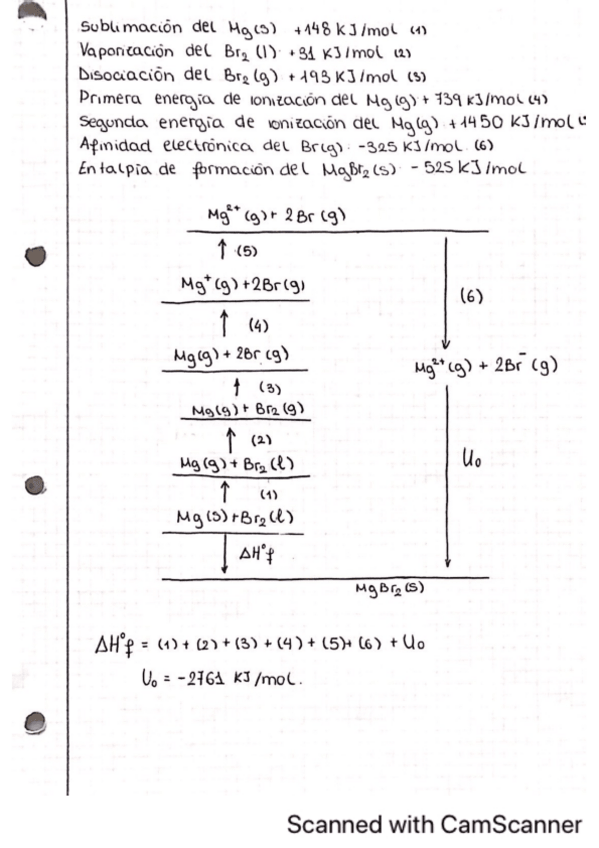 Sublimación del Mg(s) +148 KJ/mol (1)
Vaporización del Br₂ (l) +31 KJ/mol (2)
Disociación del Br₂(g) +193 KJ/mol (3)
Primera energía de ionización del Mg(g) + 739 KJ/mol (4)
Segunda energía de ionización del Mg(g) +1450 KJ/mol (
Afinidad electrónica del Br(g) -325 KJ/mol. (6)
Entalpía de formación del MgBr₂(s) - 525 KJ/mol
Mg²⁺(g) + 2Br(g)
↑ (5)
Mg⁺(g) + 2Br(g)
(6)
↑ (4)
Mg(g) + 2Br(g)
Mg²⁺(g) + 2Br⁻(g)
↑ (3)
Mg(g) + Br₂(g)
↑ (2)
Mg(g) + Br₂(l)
U₀
↑ (1)
Mg(s) + Br₂(l)
↓ ΔH°f
MgBr₂(s)
ΔH°f = (1) + (2) + (3) + (4) + (5)+ (6) + U₀
U₀ = -2761 KJ/mol.
Scanned with CamScanner